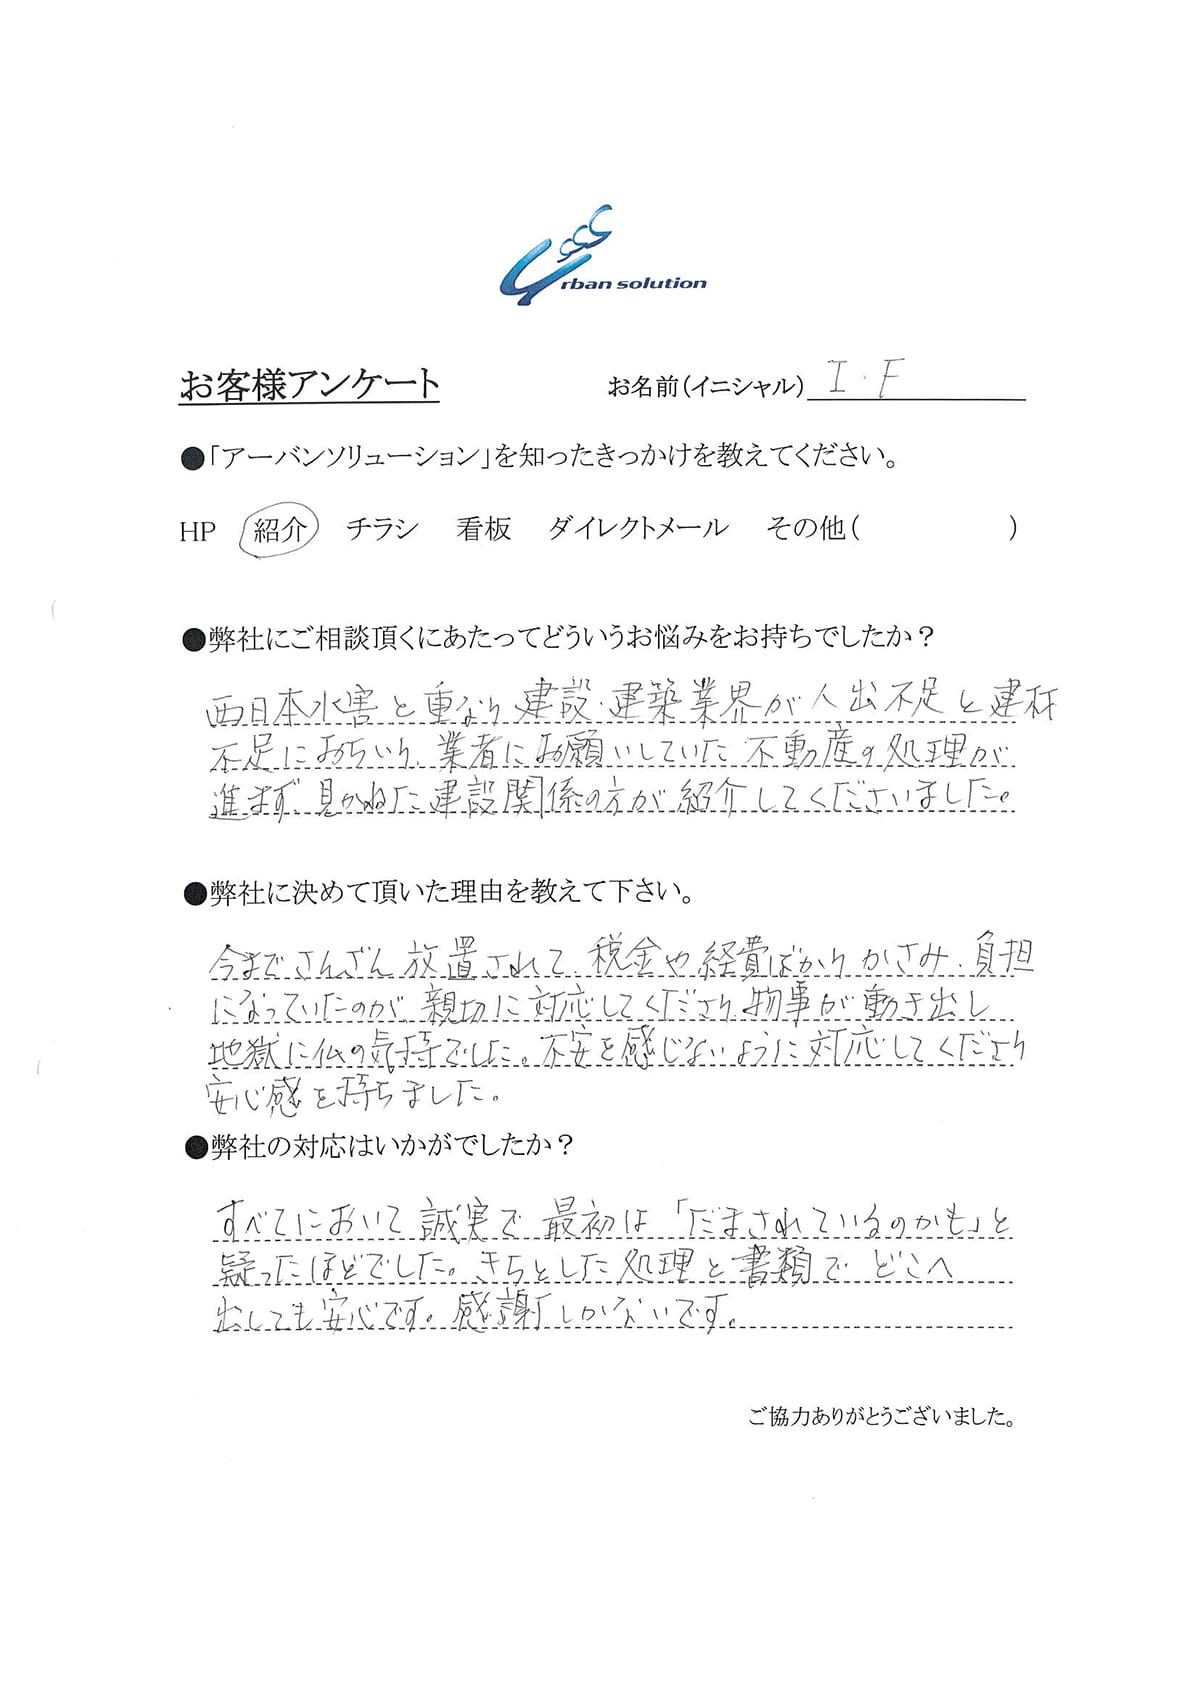 Urban solution
お客様アンケート お名前(イニシャル) I.F
●「アーバンソリューション」を知ったきっかけを教えてください。
HP 紹介 チラシ 看板 ダイレクトメール その他( )
●弊社にご相談頂くにあたってどういうお悩みをお持ちでしたか?
西日本水害と重なり建設・建築業界が人出不足と建材
不足におちいり、業者にお願いしていた不動産の処理が
進まず、見かねた建設関係の方が紹介してくださいました。
●弊社に決めて頂いた理由を教えて下さい。
今までさんざん放置されて、税金や経費ばかりかさみ、負担
になっていたのが、親切に対応してくださり、物事が動き出し
地獄に仏の気持でした。不安を感じないように対応してくださり
安心感を持ちました。
●弊社の対応はいかがでしたか?
すべてにおいて誠実で最初は「だまされているのかも」と
疑ったほどでした。きちとした処理と書類で どこへ
出しても安心です。感謝しかないです。
ご協力ありがとうございました。